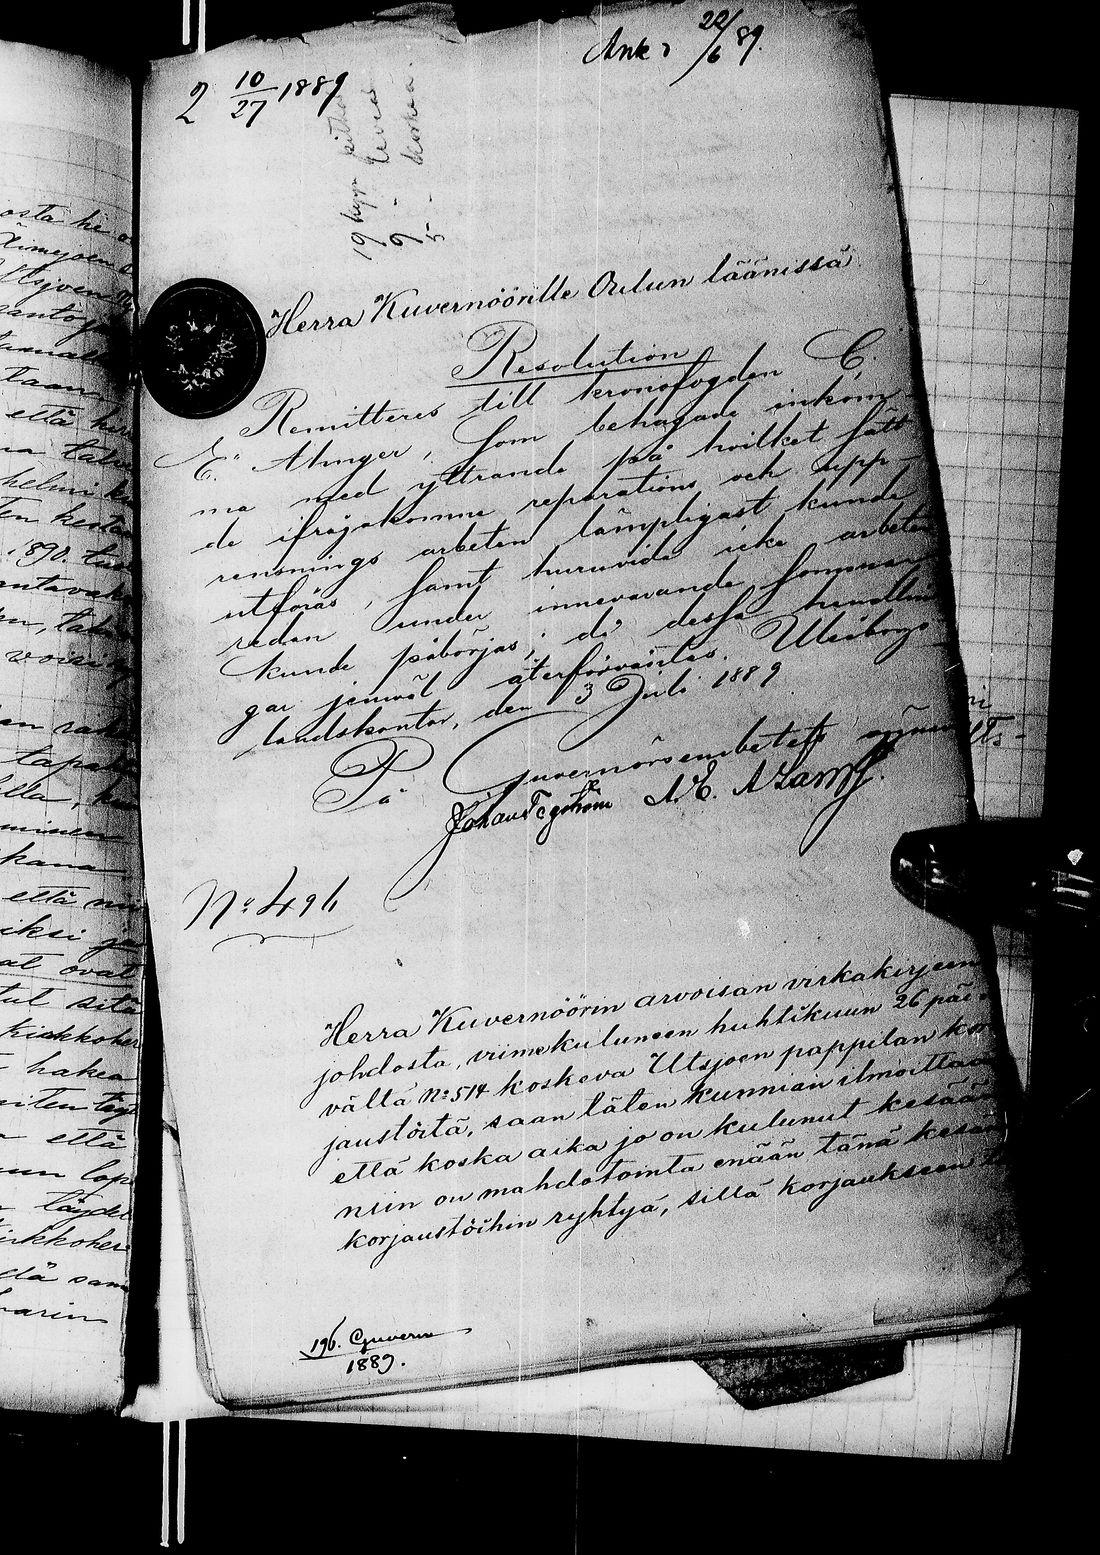 Ank. 22/6 89.
2 10/27 1889
19 kypp pitkä
9 - leveä
5 - korkea.
Herra Kuvernöörille Oulun läänissä
Resolution
Remitteras till kronofogden C.
E. Alnger, som behagade inkom-
ma med yttrande på hvilket sätt
de ifrågakomne reparations och upp-
rensnings arbeten lämpligast kunde
utföras, samt huruvida icke arbeten
redan under innevarande sommar
kunde påbörjas; då dessa handlin-
gar jemväl återförväntas. Uleåborgs
landskontor, den 3 Juli 1889
På Guvernörsembetets vägnar
Johan Tegström A. E.
No 496
Herra Kuvernöörin arvoisan virkakirjeen
johdosta, viimekuluneen huhtikuun 26 päi-
vältä No 514 koskeva Utsjoen pappilan kor-
jaustöitä, saan täten kunnian ilmoittaa
että koska aika jo on kulunut kesään
niin on mahdotointa enään tänä kesänä
korjaustöihin ryhtyä, sillä korjaukseen
196. Guvern
1889.
osta he
Utsjoen
taan
että
talve
helmi
ten
1890.
antavak
voisi
tapah
kana
että
iksi
at ovat
tul sitä
kirkkoher
hakea
että
täydel
kirkkoher
dä sam